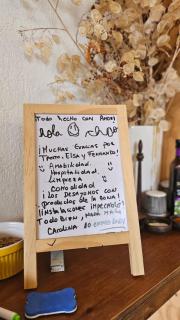 Todo hecho con Amor
hola chao
¡Muchas gracias por
Trato, Elsa y Fernando!
Amabilidad.
Hospitalidad.
Limpieza
¡Comodidad
¡Los desayunos con
productos de la zona!
¡Instalaciones impecables!
Todo bien, nada mal
Carolina